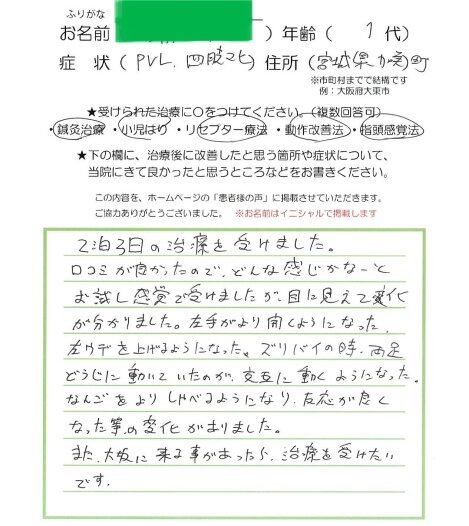 ふりがな
お名前 ) 年齢 ( 1 代)
症 状 ( PVL、四肢マヒ ) 住所 (宮城県加美町
※市町村までで結構です
例：大阪府大東市
★受けられた治療に○をつけてください。(複数回答可)
・鍼灸治療 ・小児はり ・リセプター療法 ・動作改善法 ・指頭感覚法
★下の欄に、治療後に改善したと思う箇所や症状について、
当院にきて良かったと思うところなどをお書きください。
この内容を、ホームページの「患者様の声」に掲載させていただきます。
ご協力ありがとうございました。 ※お名前はイニシャルで掲載します
2泊3日の治療を受けました。
口コミが良かったので、どんな感じかなーと
お試し感覚で受けましたが、目に見えて変化
が分かりました。左手がより開くようになった、
左ウデを上げるようになった。ズリバイの時、両足
どうじに動いていたのが、交互に動くようになった。
なんごをよりしゃべるようになり、反応が良く
なった等の変化がありました。
また、大阪に来る事があったら、治療を受けたい
です。